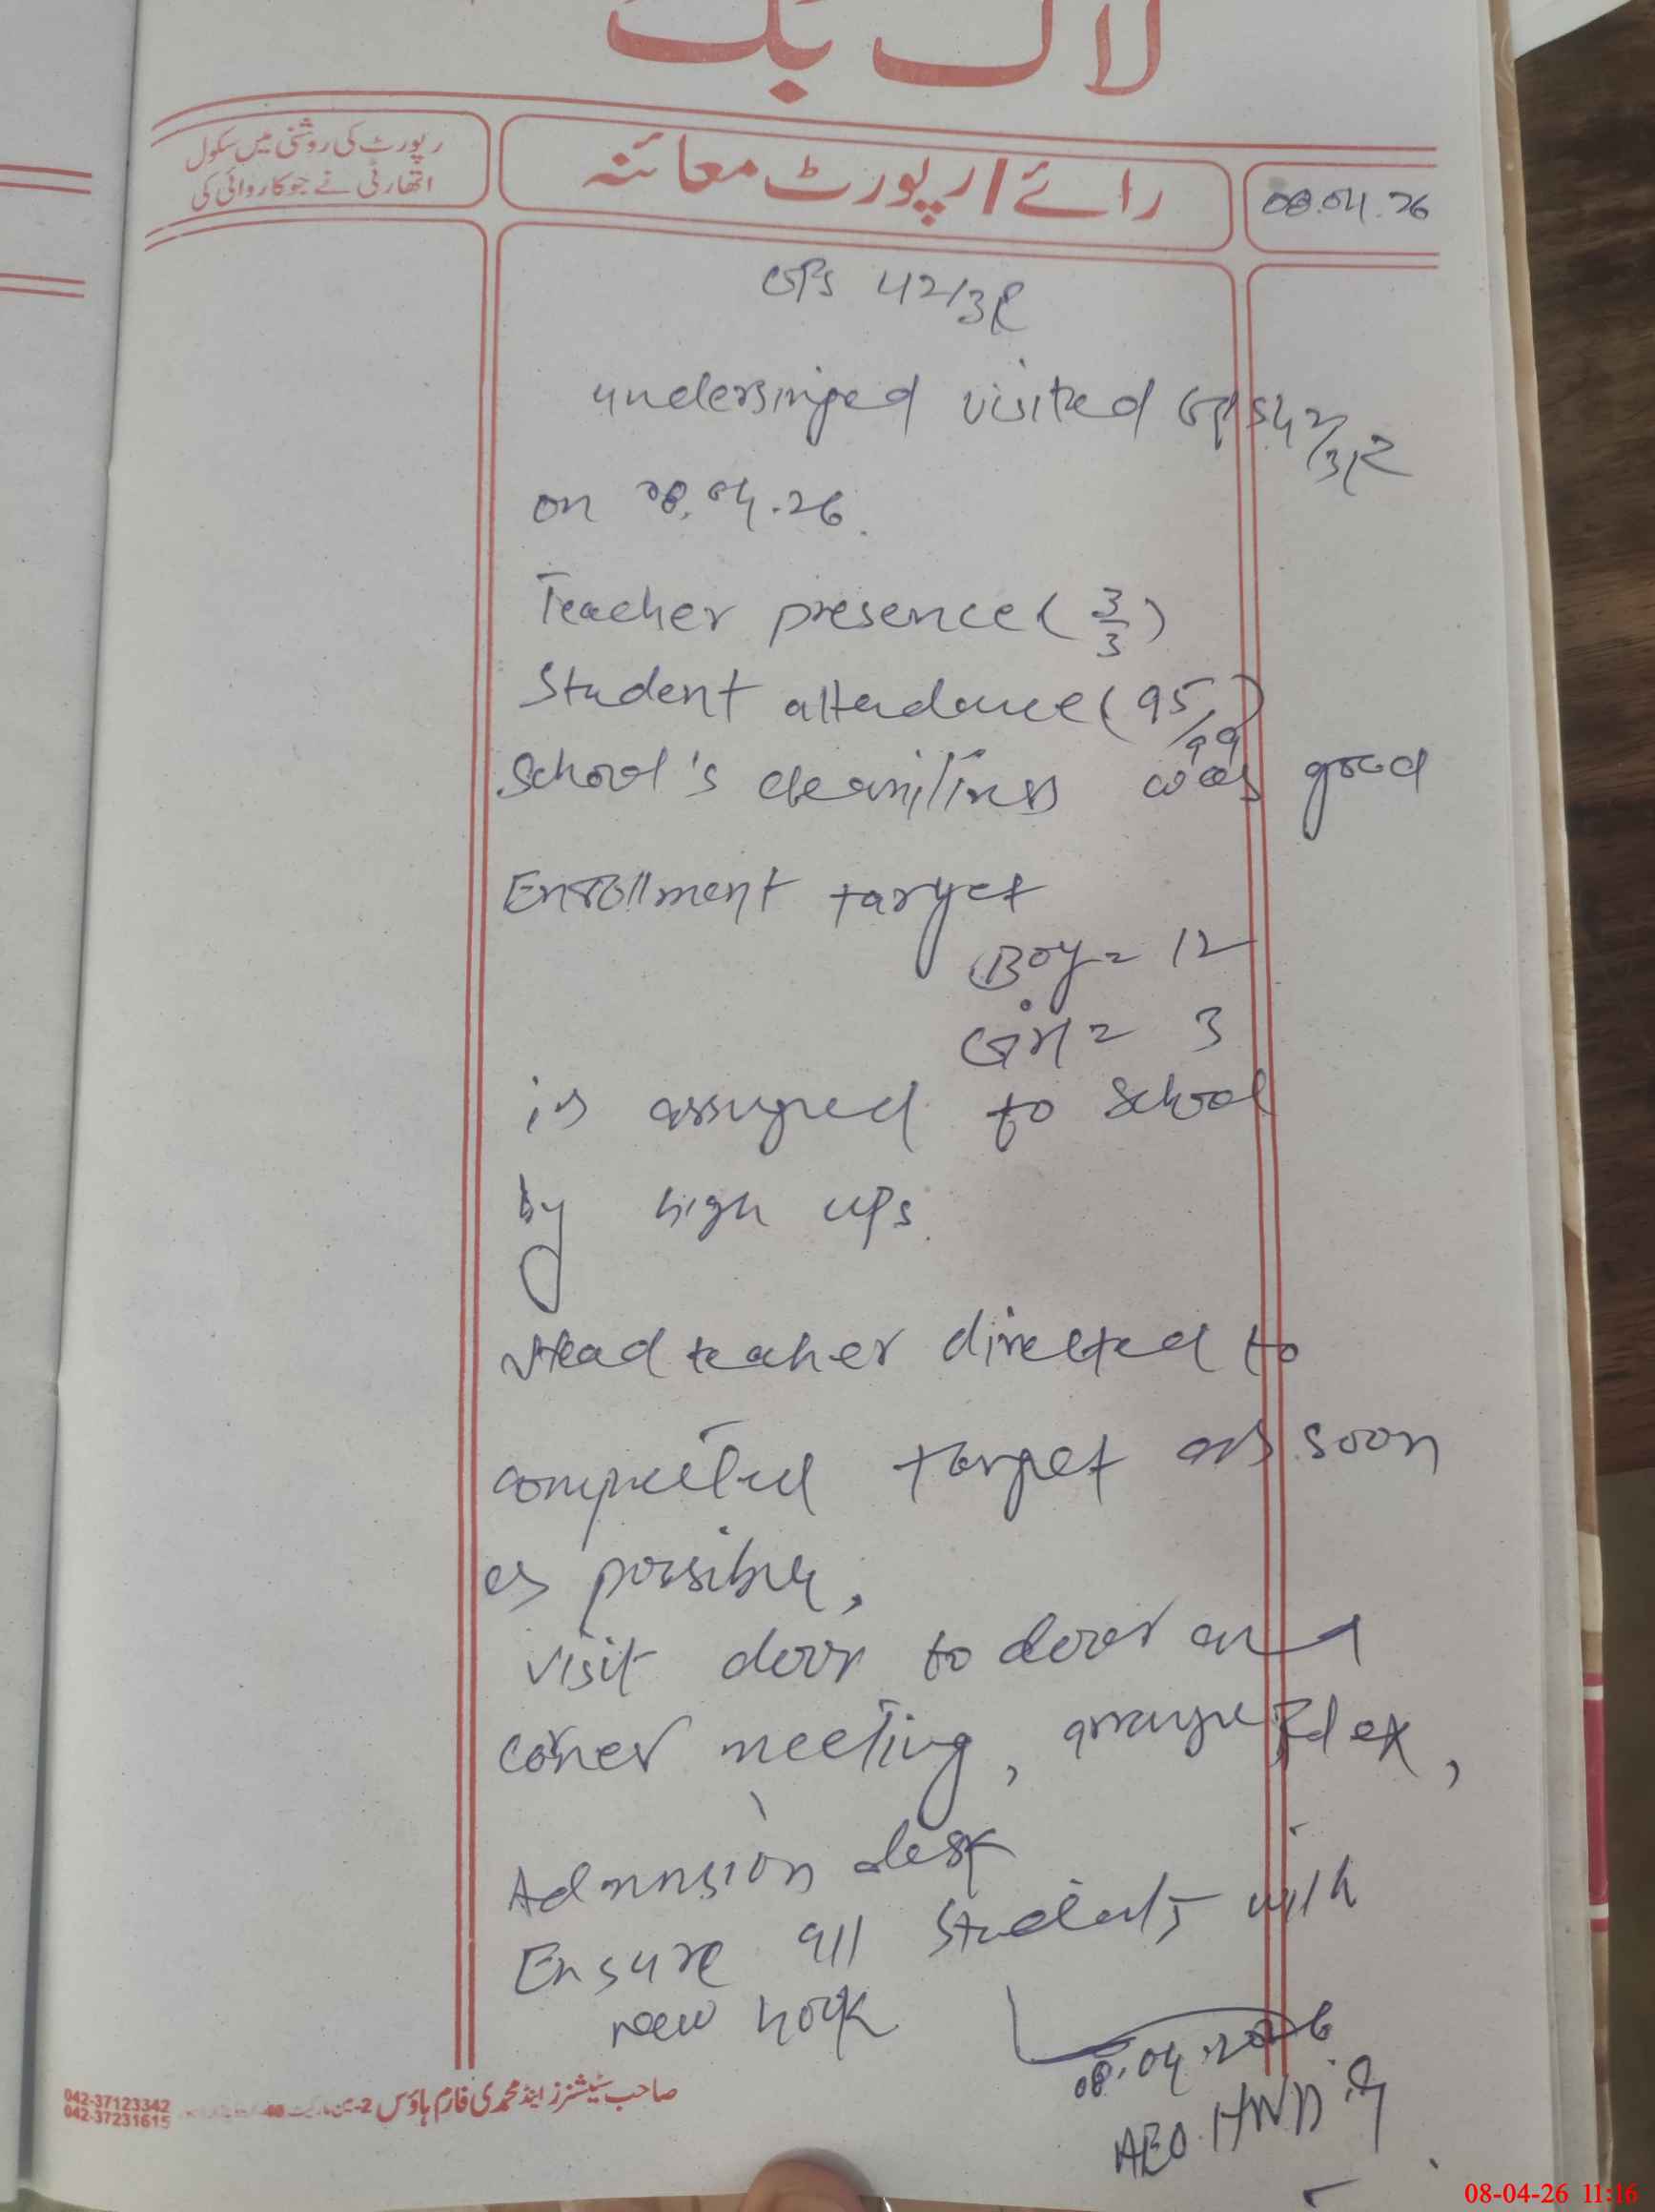 لاگ بک
رپورٹ کی روشنی میں سکول
اتھارٹی نے جو کاروائی کی
رائے / رپورٹ معائنہ
08.04.26
GPS 42/3R
undersinged visited GPS 42/3R
on 08.04.26.
Teacher presence ( 3/3 )
Student attendance ( 95/99 )
School's cleaniliness was good
Enrollment target
Boy = 12
Girl = 3
is assigned to school
by high ups.
Head teaher directed to
compleeted target as soon
as possible,
visit door to door and
coner meeting, arrange Fdex,
Admission desk
Ensure all students with
new
08.04.2026
AEO. HND
صاحب سٹیشنرز اینڈ محمدی فارم ہاؤس 2-
042-37123342
042-37231615
08-04-26 11:16